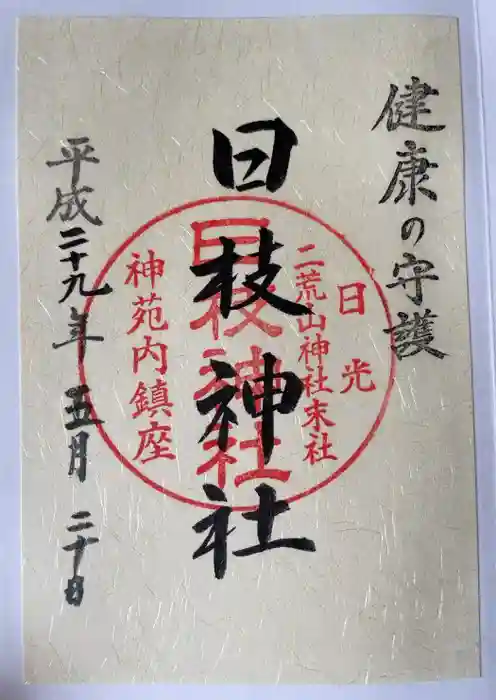 健康の守護
日光
二荒山神社末社
日枝神社
日枝神社
神苑内鎮座
平成二十九年 五月 二十日